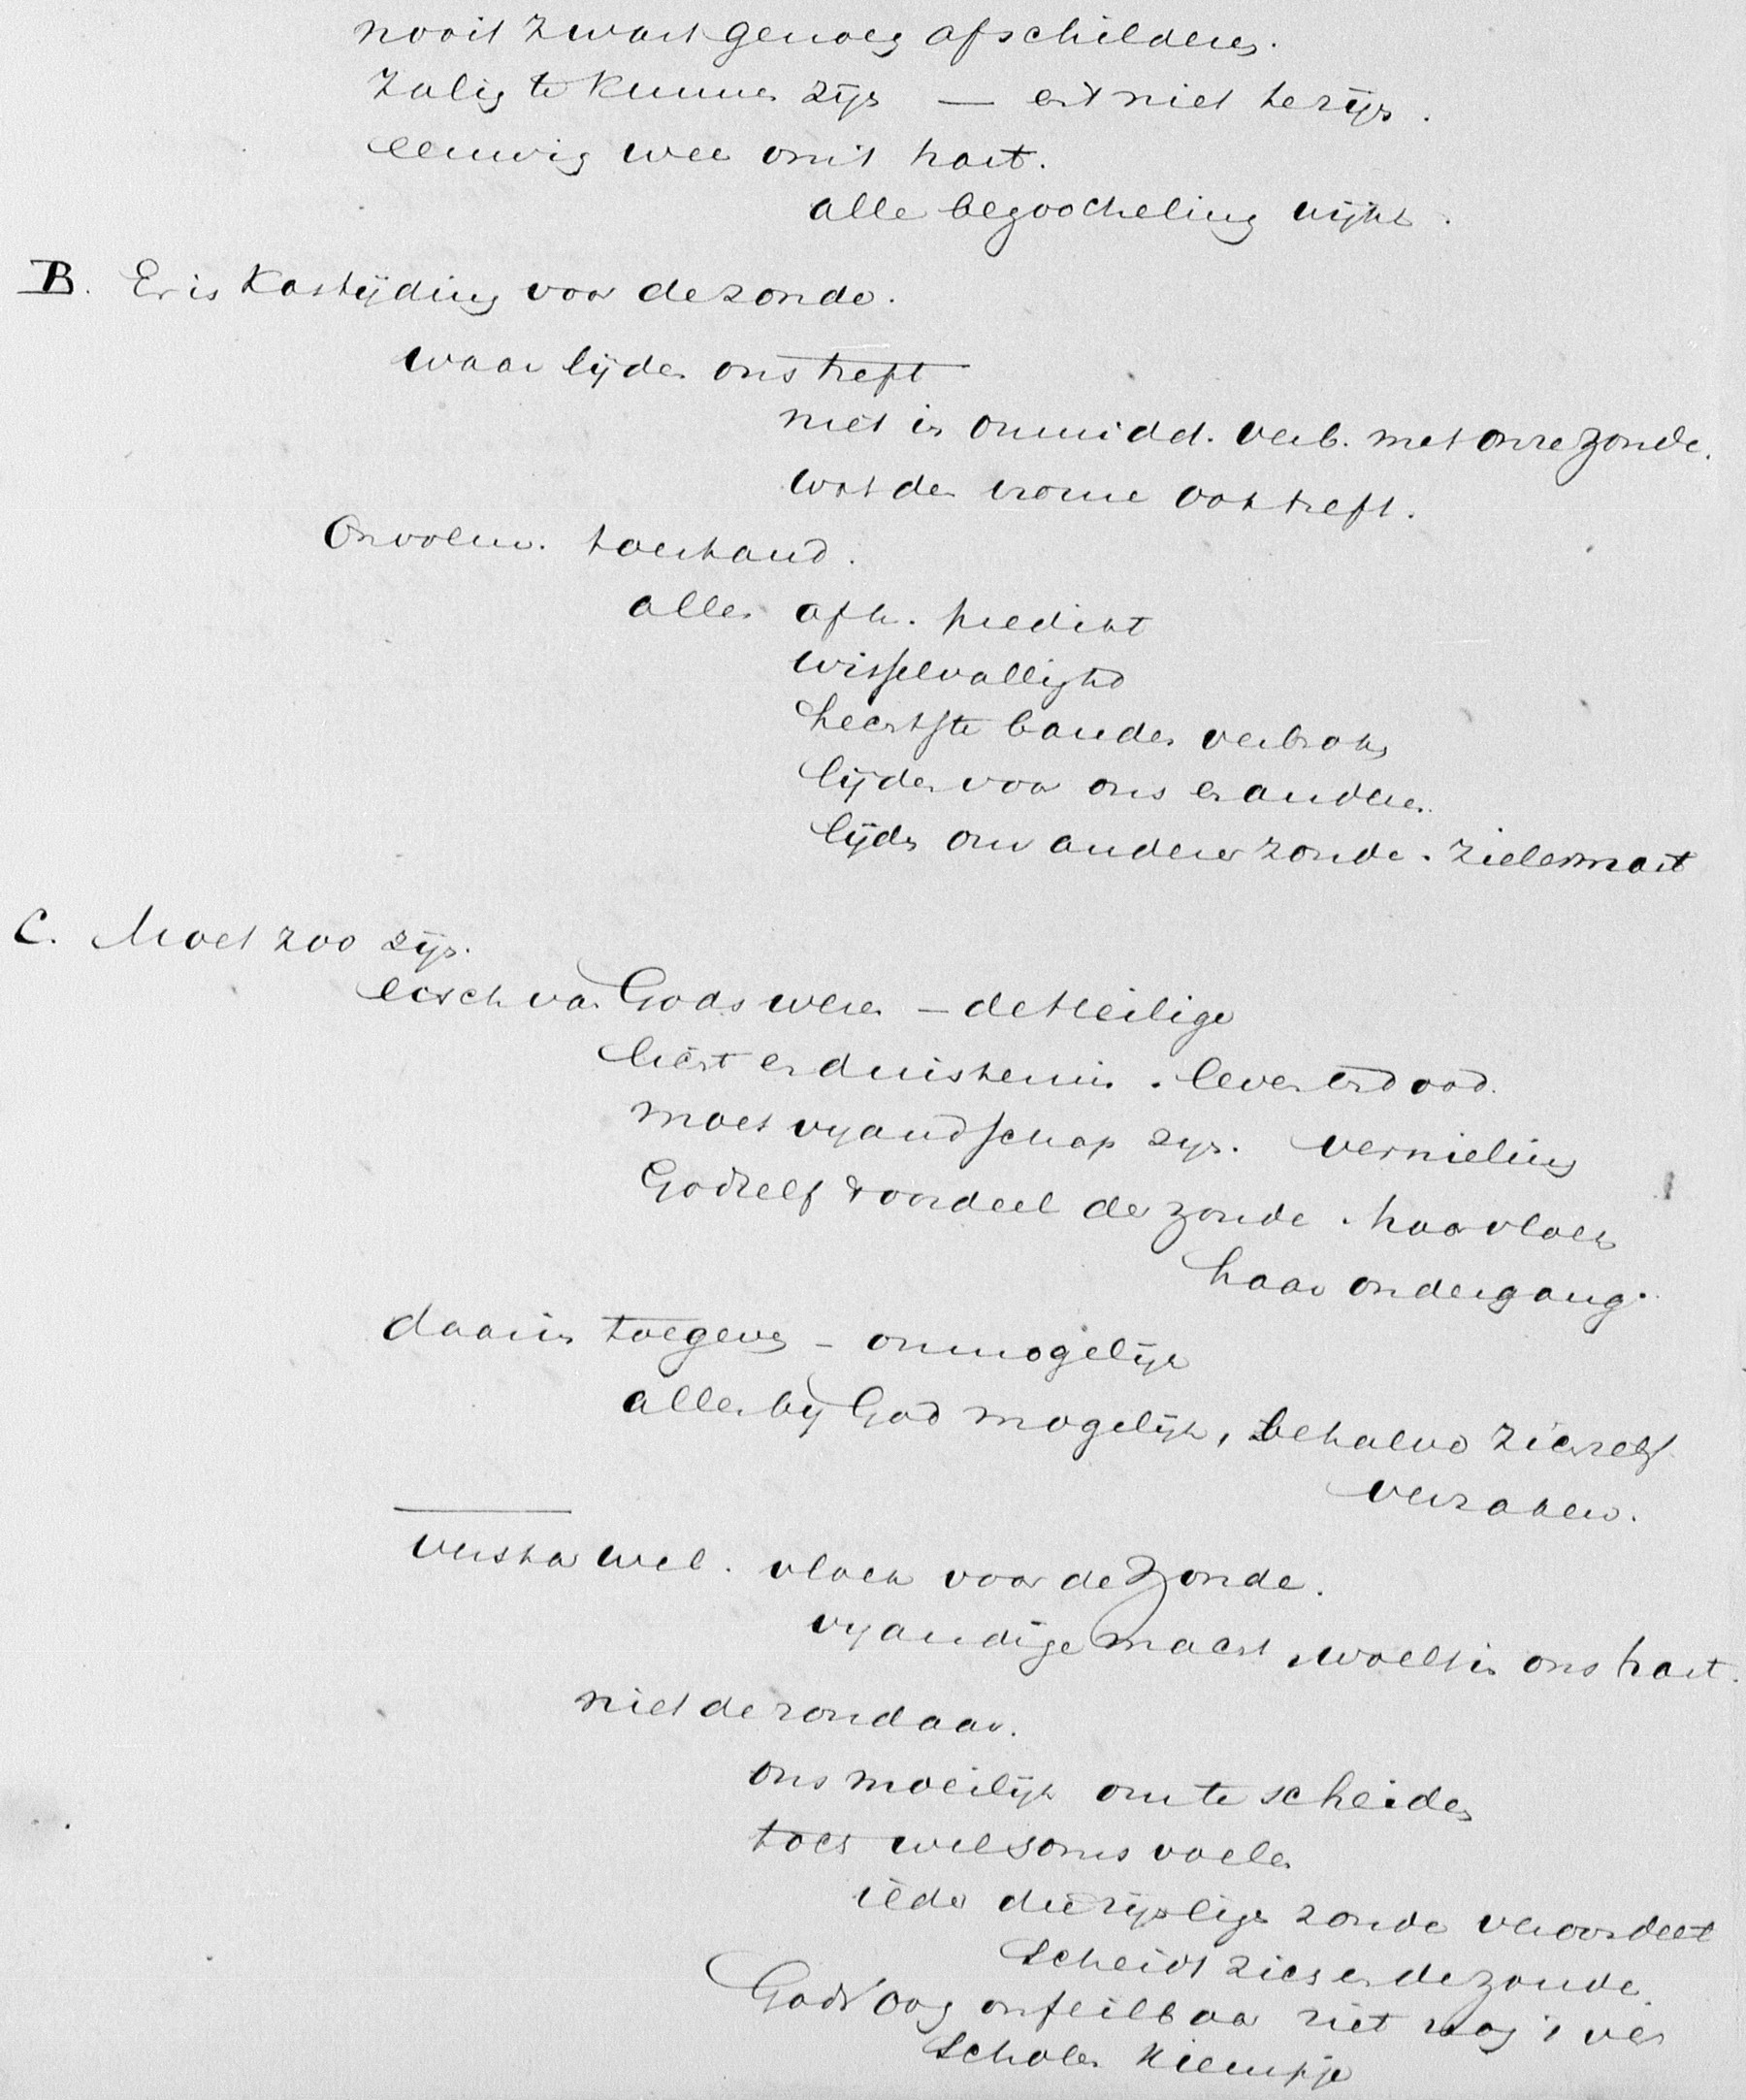 nooit zwart genoeg afschilderen.
Zalig te kunnen zijn — en't niet te zijn.
eeuwig wee om't hart.
alle begoocheling wijkt.
B. Er is Kastijding voor de zonde.
waar lijden ons treft
niet in onmidd. verb. met onze zonde.
wat den vrome ook treft.
Onvolm. toestand.
alles afh. predikt
wisselvallighd
hechtste banden verbroken
lijden voor ons en anderen.
lijden om anderer zonde. zielesmart
C. Moet zoo zijn.
eisch van Gods wezen – de Heilige
licht en duisternis. leven en dood.
moet vyandschap zyn. vernieling
Godzelf 't oordeel der zonde. haar vloek
haar ondergang.
daarin toegeven – onmogelijk
alles by God mogelijk, behalve zichzelf
verzaken.
versta wel. vloek voor de Zonde.
vyandige macht, woelt in ons hart.
niet de zondaar.
ons moeilijk om te scheiden
toch wel soms voelen
ieder die zijn eigen zonde veroordeelt
scheidt zich en de zonde.
Gods oog onfeilbaar ziet nog 't ver
scholen kiempje